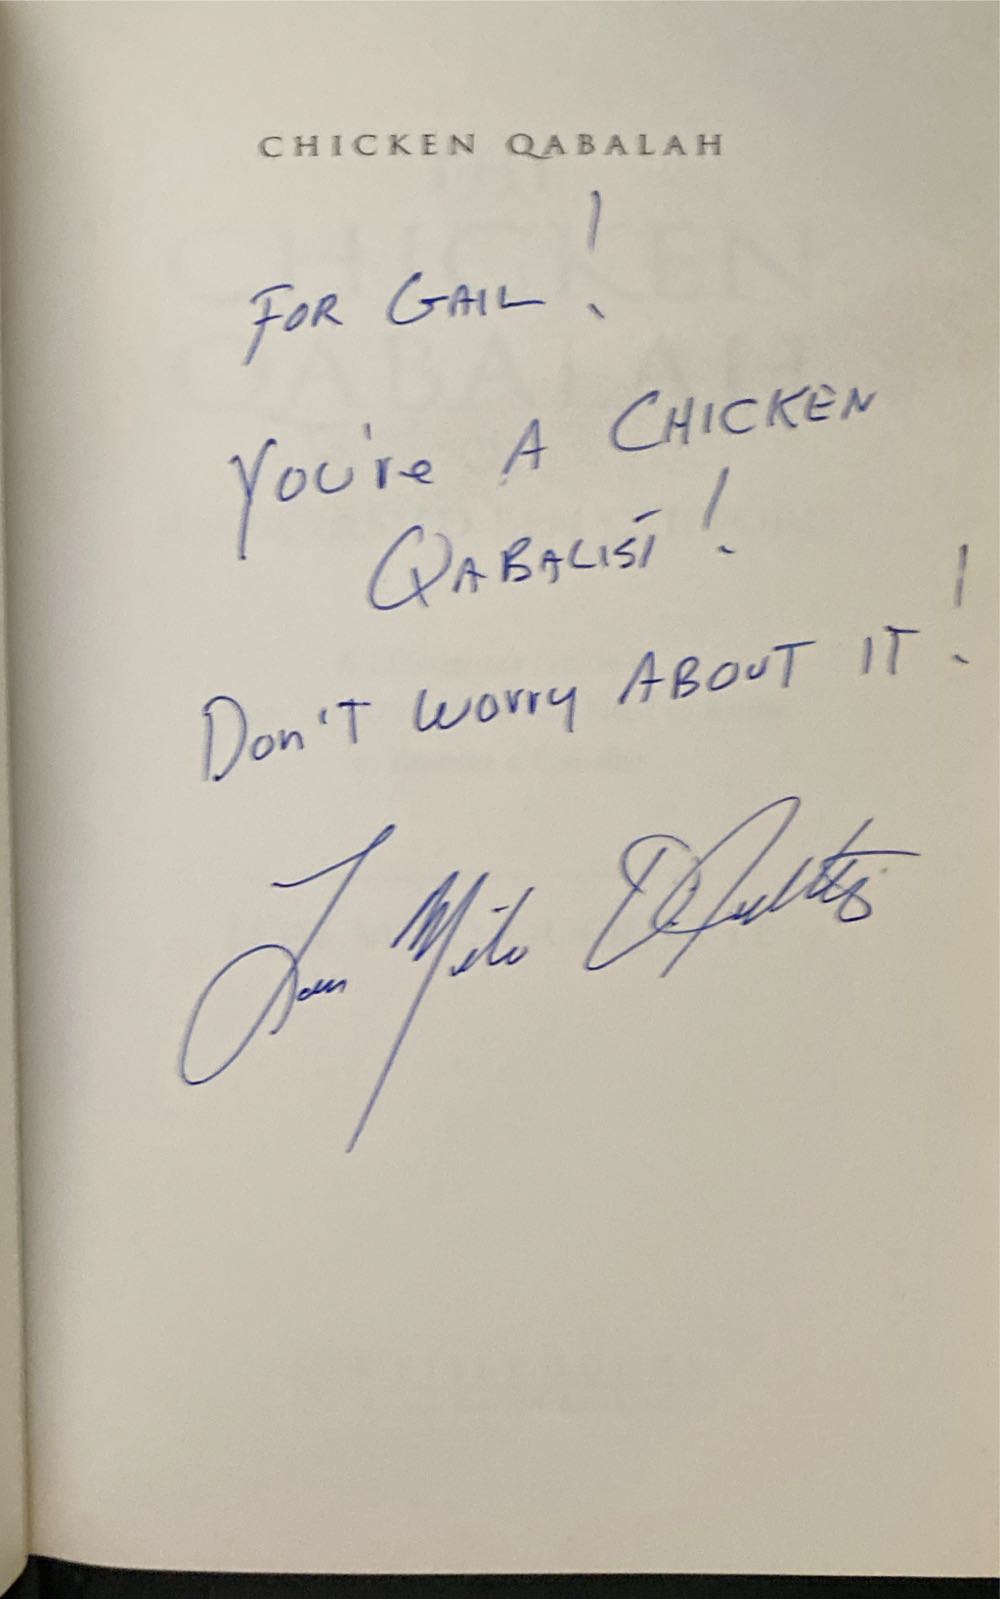 CHICKEN QABALAH
FOR GAIL!
You're A CHICKEN
QABALIST!
Don'T Worry ABOUT IT!
Lon Milo DuQuette